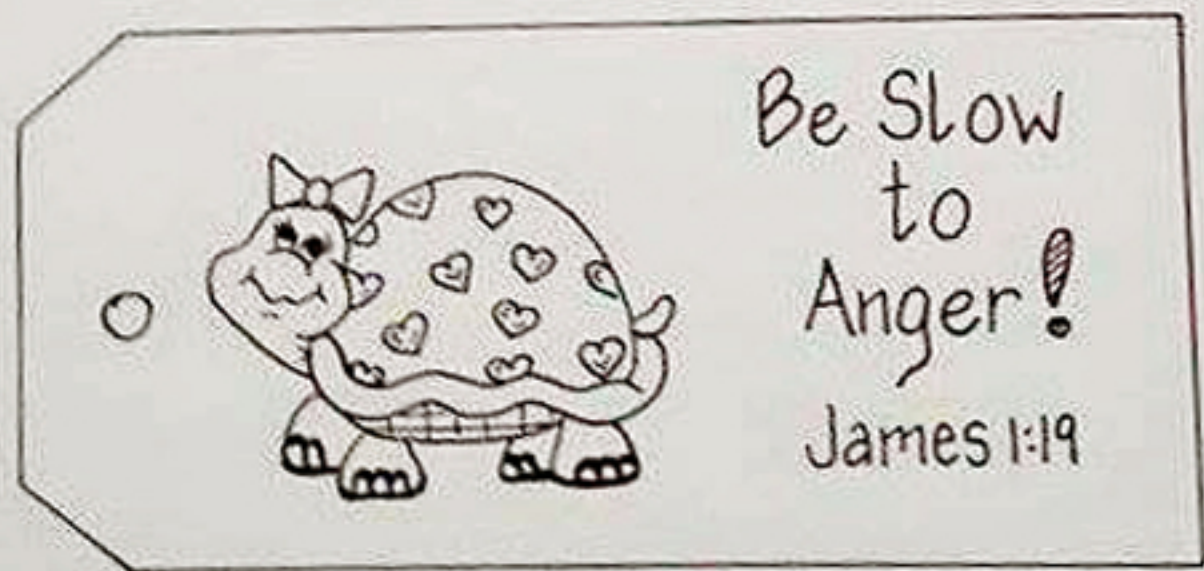 Be Slow
to
Anger!
James 1:19